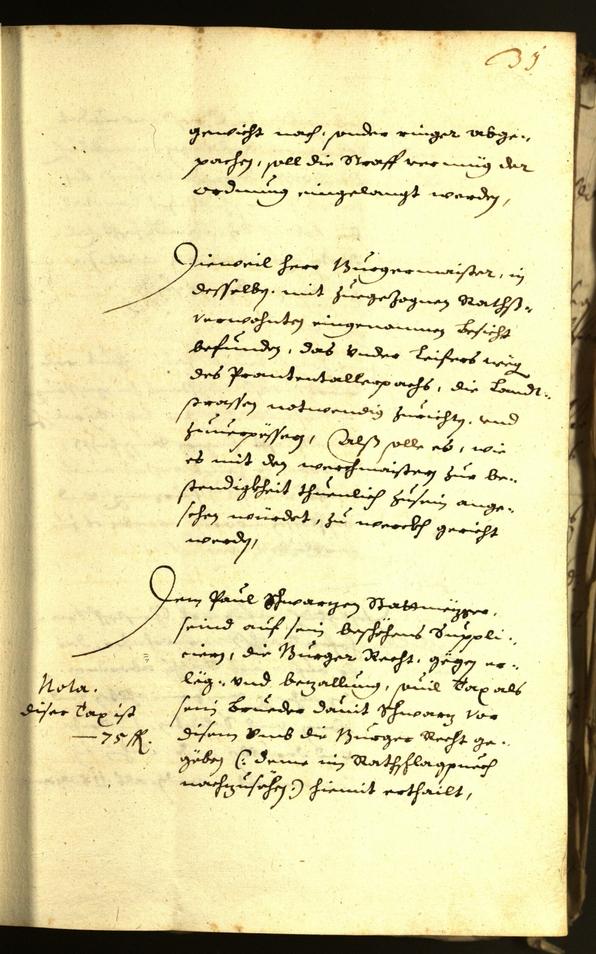 35
gewicht nach, under ringer abge-
pachen, soll die Straff vermüg der
ordnung eingelangt werden,
Dieweil herr Burgermaister, in
desselben mit zuegezognen Raths-
verwohnten eingenommen besicht
befunden, das under Leifers weg
des Prantentallerpachs, die Landt-
strassen notwendig zurichten, und
zuverpessern, Alß solle es, wie
es mit den werchmaistern zur be-
stendigkheit thuenlich zusein ange-
sehen würdet, zu werckh gericht
werden,
Dem Paul Schwarzen Stattmezger,
seind auf sein beschehens Suppli-
ciern, die Burger Recht, gegen er-
leg- und bezallung, sovil Tax als
sein brueder Davit Schwarz vor
disem umb die Burger Recht ge-
geben (: deme im Rathschlagpuech
nachzusehen :) hiemit erthailt,
Nota.
diser Tax ist
— 75 fl.